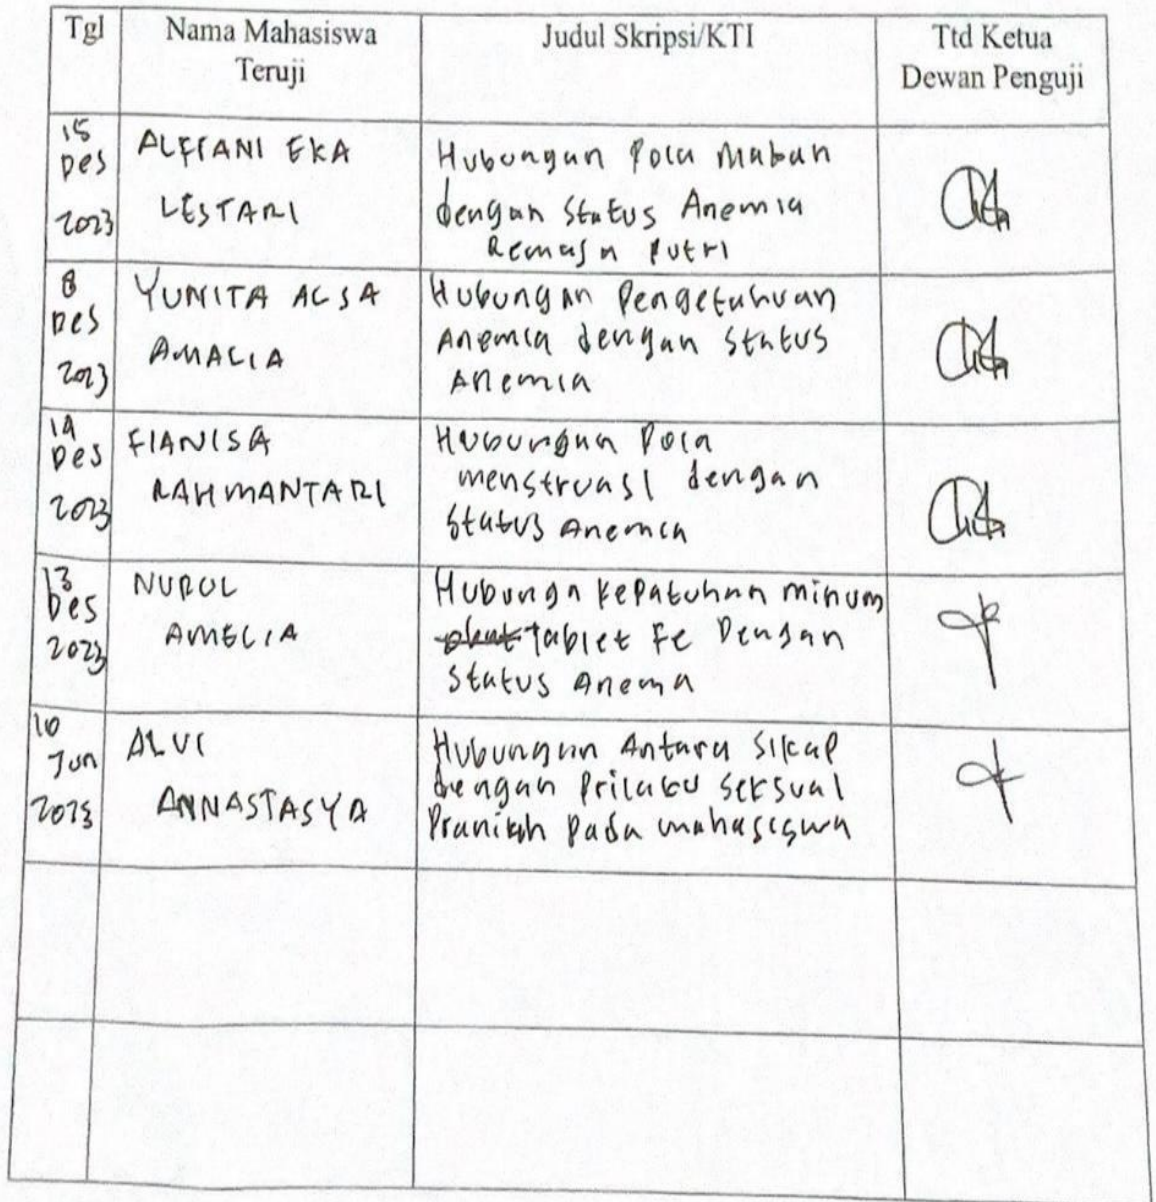 Tgl Nama Mahasiswa Teruji Judul Skripsi/KTI Ttd Ketua Dewan Penguji
15 Des 2023
ALFIANI EKA
LESTARI
Hubungan Pola Makan
dengan Status Anemia
Remaja Putri
8 Des 2023
YUNITA ALSA
AMALIA
Hubungan Pengetahuan
Anemia dengan Status
Anemia
14 Des 2023
FIANISA
RAHMANTARI
Hubungan Pola
menstruasi dengan
Status Anemia
13 Des 2023
NUROL
AMELIA
Hubunga kepatuhan minum
Tablet Fe Dengan
Status Anema
10 Jun 2025
ALVI
ANNASTASYA
Hubungan Antara Sikap
dengan Prilaku Seksual
Pranikah pada mahasiswa